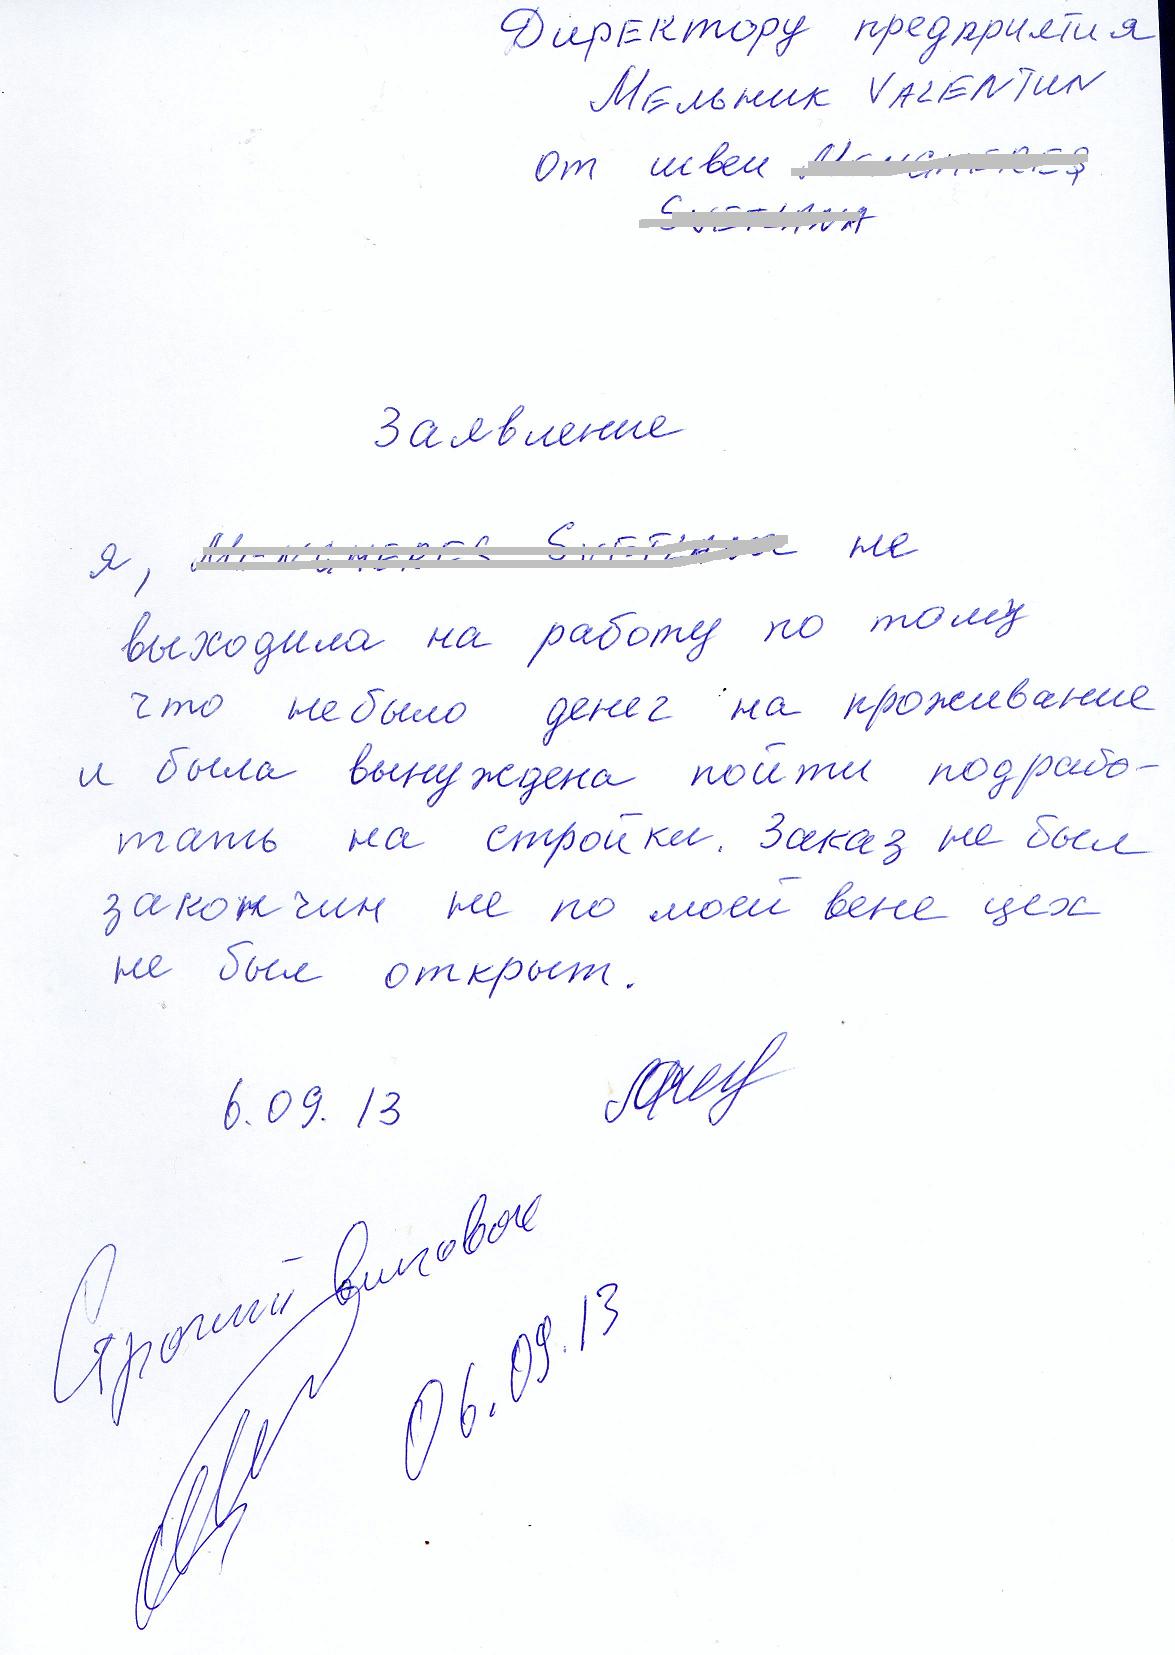 Директору предприятия
Мельник VALENTUN
от швеи
Заявление
я, не
выходила на работу по тому
что небыло денег на проживание
и была вынуждена пойти подрабо-
тать на стройки. Заказ не был
закончин не по моей вене цех
не был открыт.
6.09.13
Строгий выговор
06.09.13